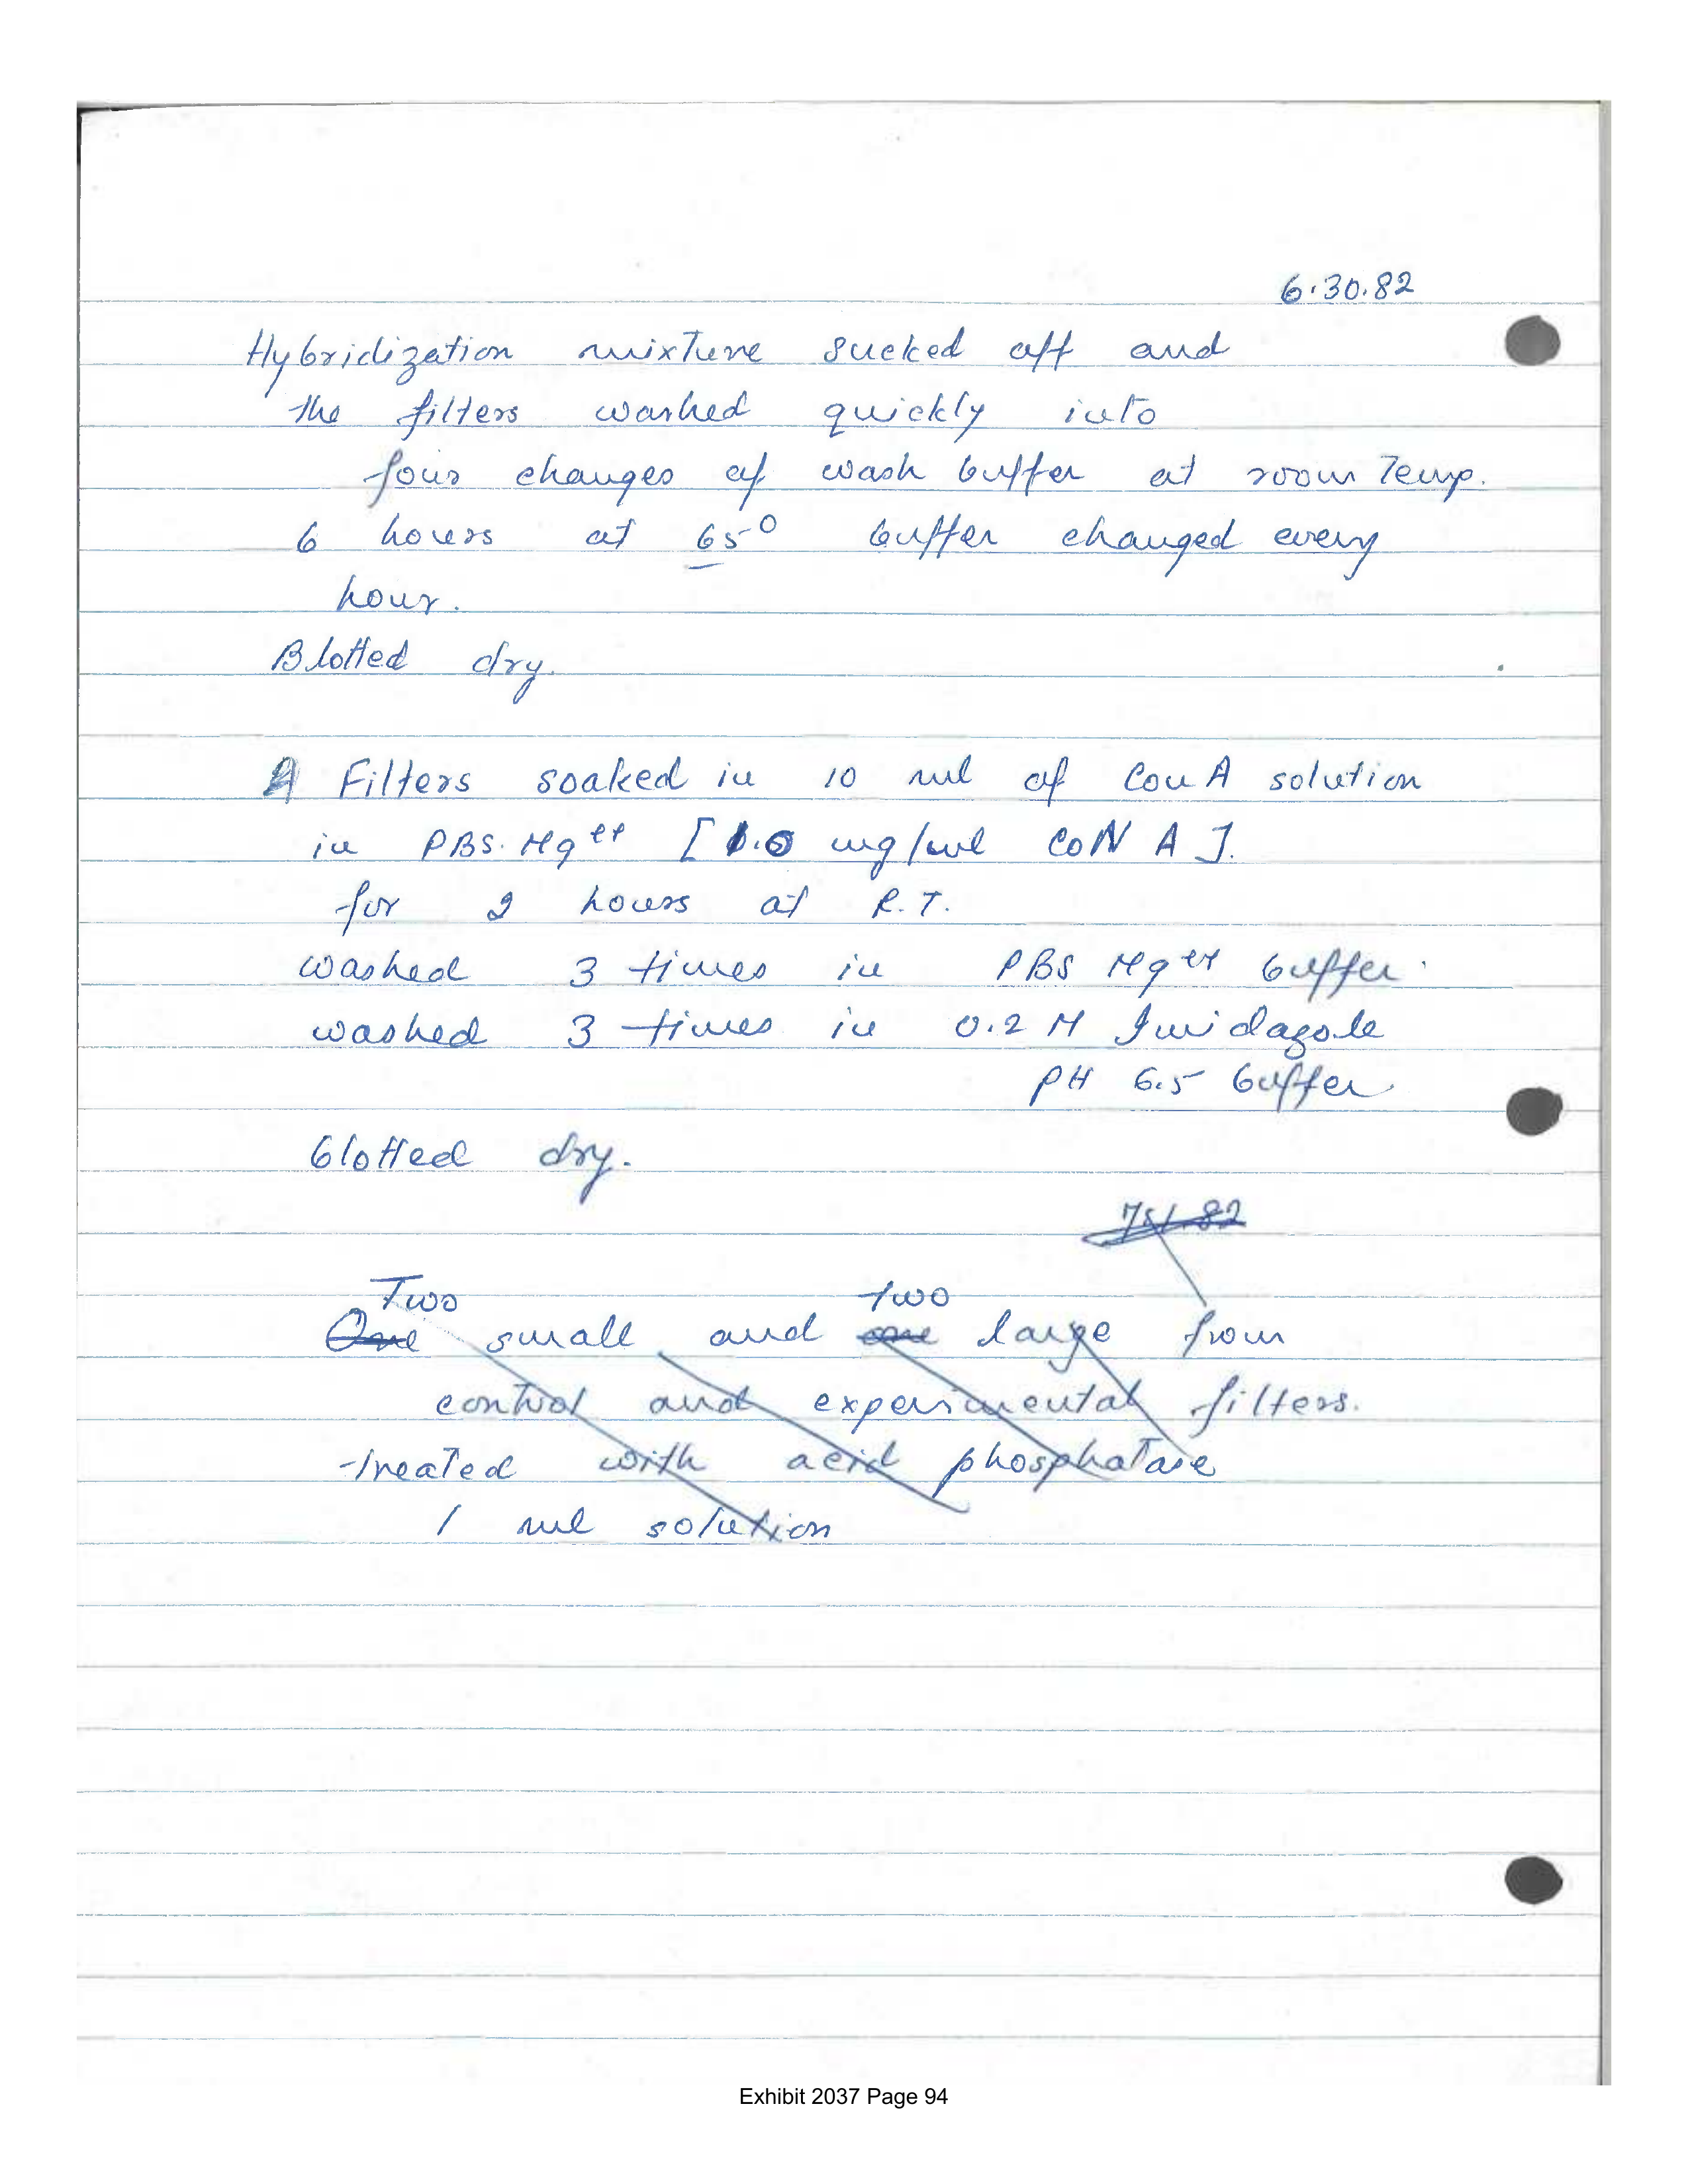 6.30.82
Hybridization mixture sucked off and
the filters washed quickly into
four changes of wash buffer at room Temp.
6 hours at 65° buffer changed every
hour.
Blotted dry.
Filters soaked in 10 ml of Con A solution
in PBS. Mg++ [1.0 mg/ml CoN A].
for 2 hours at R.T.
washed 3 times in PBS Mg++ buffer.
washed 3 times in 0.2 M Imidazole
pH 6.5 buffer
blotted dry.
Two two
One small and one large from
control and experimental filters.
treated with acid phosphatase
1 ml solution
Exhibit 2037 Page 94